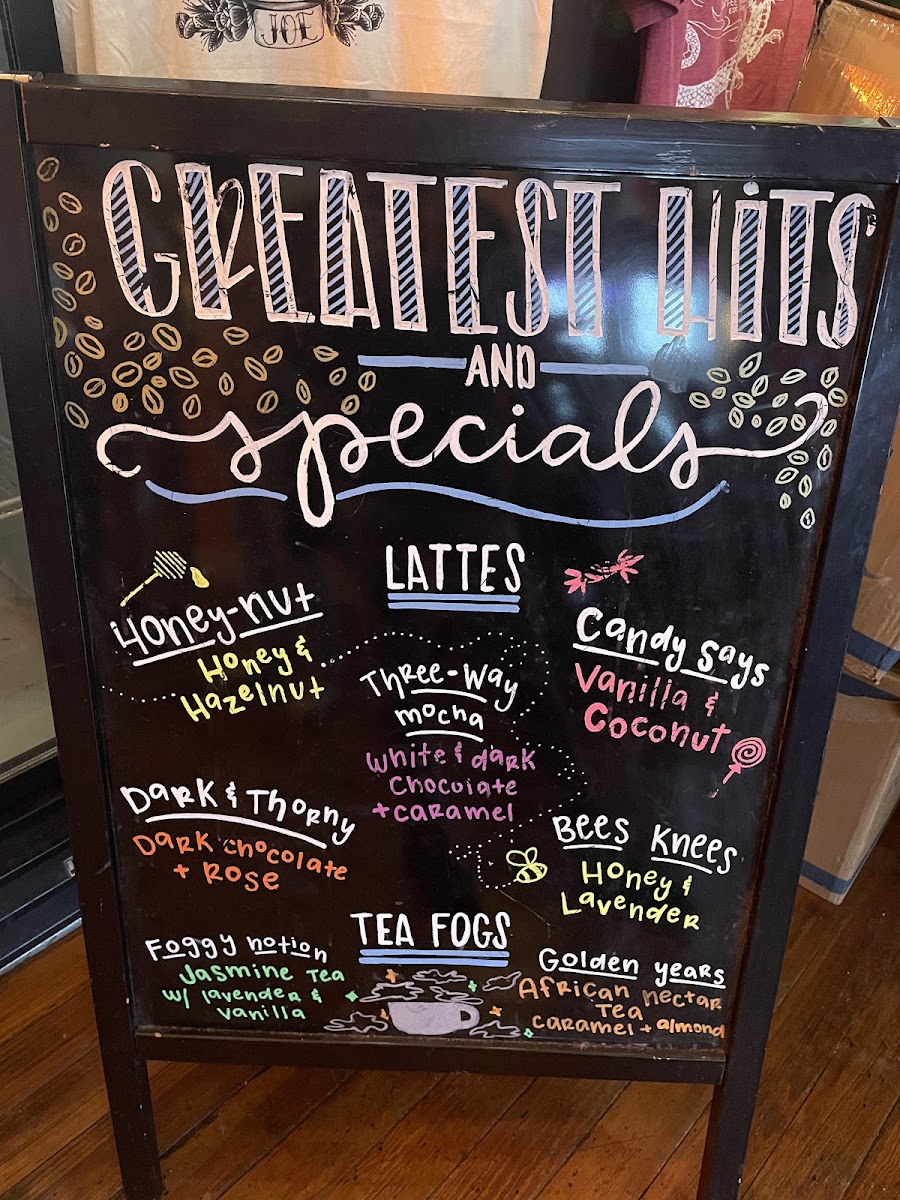 JOE
GREATEST HITS
AND
specials
LATTES
Honey-nut
Honey &
Hazelnut
Three-Way
mocha
White & dark
Chocolate
+ caramel
Candy Says
Vanilla &
Coconut
Dark & Thorny
Dark chocolate
+ Rose
Bees Knees
Honey &
Lavender
TEA FOGS
Foggy notion
Jasmine Tea
w/ lavender &
vanilla
Golden years
African nectar
Tea
caramel + almond